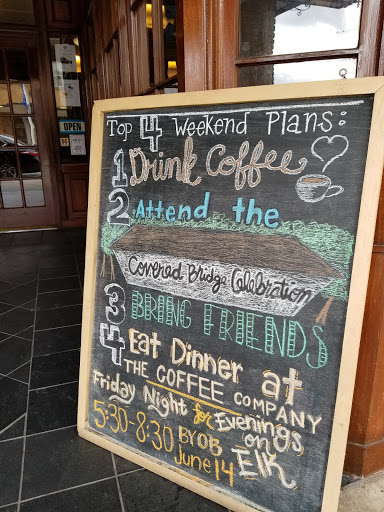 OPEN
Top 4 Weekend Plans:
1 Drink Coffee
2 Attend the
Covered Bridge Celebration
3 BRING FRIENDS
4 Eat Dinner at
THE COFFEE COMPANY
Friday Night for Evenings
on
5:30-8:30 BYOB Elk
June 14